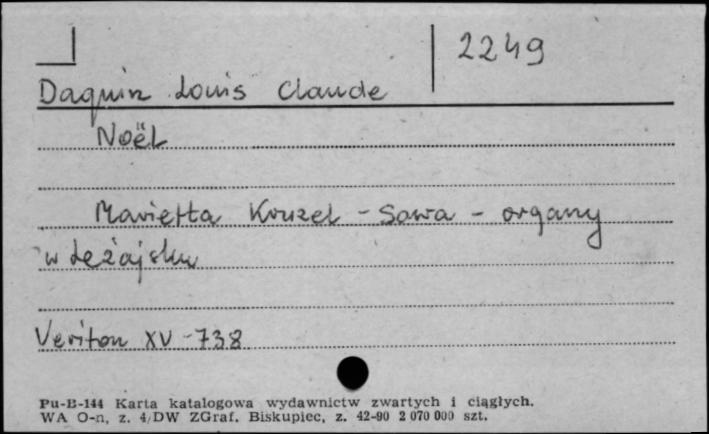 2249
Daquin Louis Claude
Noël
Marietta Kruzel - Sowa - organy
w Leżajsku
Veriton XV-738
Pu-B-144 Karta katalogowa wydawnictw zwartych i ciągłych.
WA O-n, z. 4/DW ZGraf. Biskupiec, z. 42-90 2 070 000 szt.